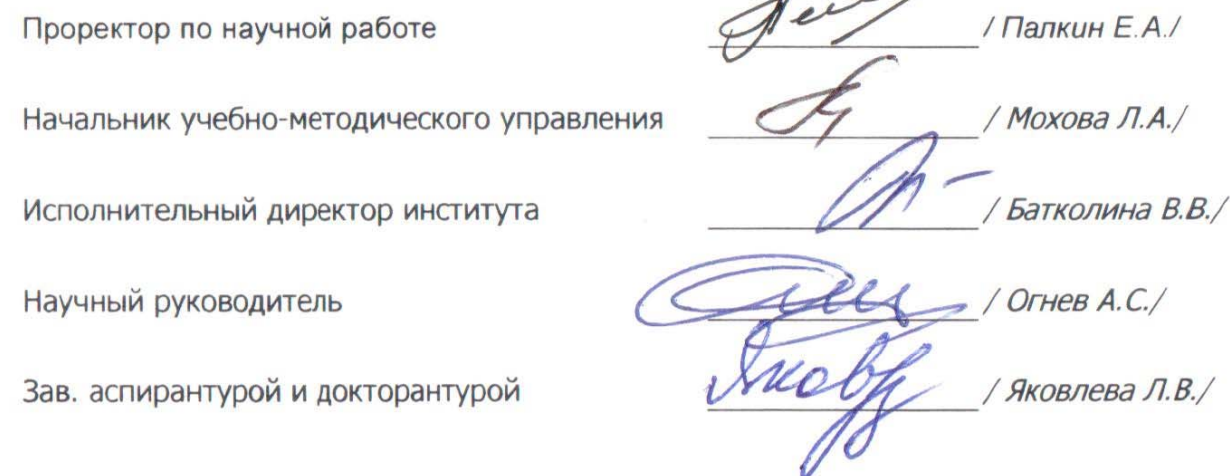 Проректор по научной работе / Палкин Е.А./
Начальник учебно-методического управления / Мохова Л.А./
Исполнительный директор института / Батколина В.В./
Научный руководитель / Огнев А.С./
Зав. аспирантурой и докторантурой / Яковлева Л.В./